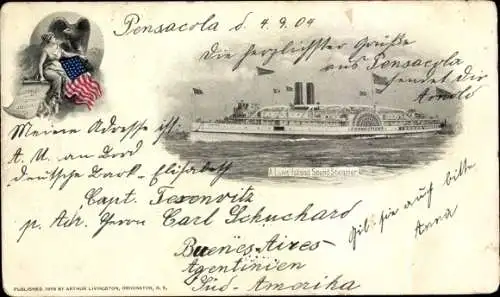 Pensacola d. 4.9.04
Die herzlichsten Grüße
aus Pensacola
sendet Dir
Arnold
Meine Adresse ist:
A. U. an Bord
deutsche Bark - Elisabeth
Capt.
p. Adr. Herrn Carl Schuchard
Buenes-Aires
Agentinien
Süd-Amerika
Gib sie auch bitte
Anna
A Long Island Sound Steamer
PUBLISHED 1898 BY ARTHUR LIVINGSTON,